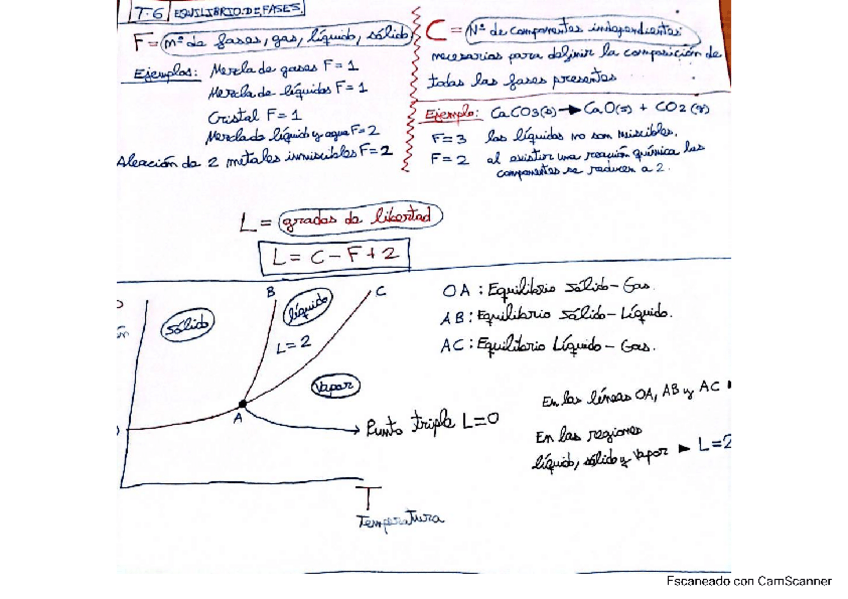 T.6 EQUILIBRIO DE FASES
F = nº de fases, gas, líquido, sólido
Ejemplos: Mezcla de gases F=1
Mezcla de líquidos F=1
Cristal F=1
Mezcla de líquido y agua F=2
Aleación de 2 metales inmiscibles F=2
C = Nº de componentes independientes
necesarios para definir la composición de
todas las fases presentes
Ejemplo: CaCO3(s) → CaO(s) + CO2(g)
F=3 los líquidos no son miscibles.
F=2 al existir una reacción química los
componentes se reducen a 2.
L = grados de libertad
L = C - F + 2
B
C
sólido
líquido
L=2
vapor
A
Punto triple L=0
T
Temperatura
OA: Equilibrio sólido-Gas.
AB: Equilibrio sólido-Líquido.
AC: Equilibrio Líquido-Gas.
En las líneas OA, AB y AC
En las regiones
líquido, sólido y vapor ► L=2
Escaneado con CamScanner